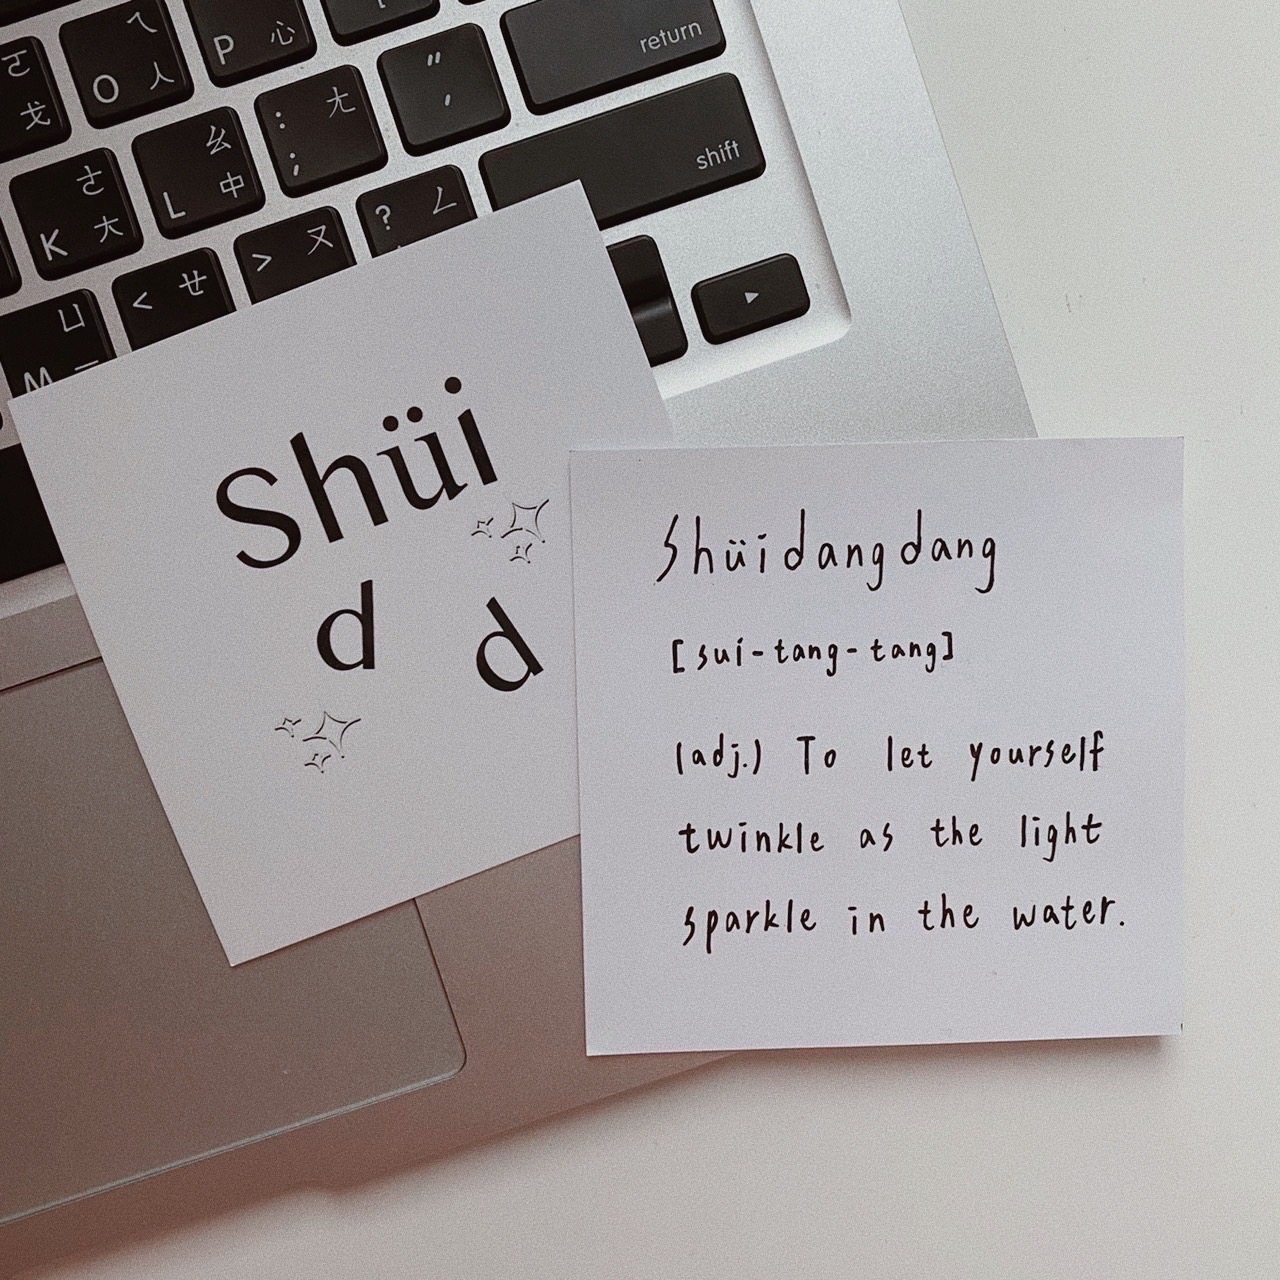 ㄟ
ㄛ
O 人
P 心
戈
" return
'
: ㄤ
;
ㄠ
L 中
shift
ㄜ
K 大
? ㄥ
> ㄡ
< ㄝ
ㄩ
M 一
Shüi
d d
Shüidangdang
[sui-tang-tang]
(adj.) To let yourself
twinkle as the light
sparkle in the water.